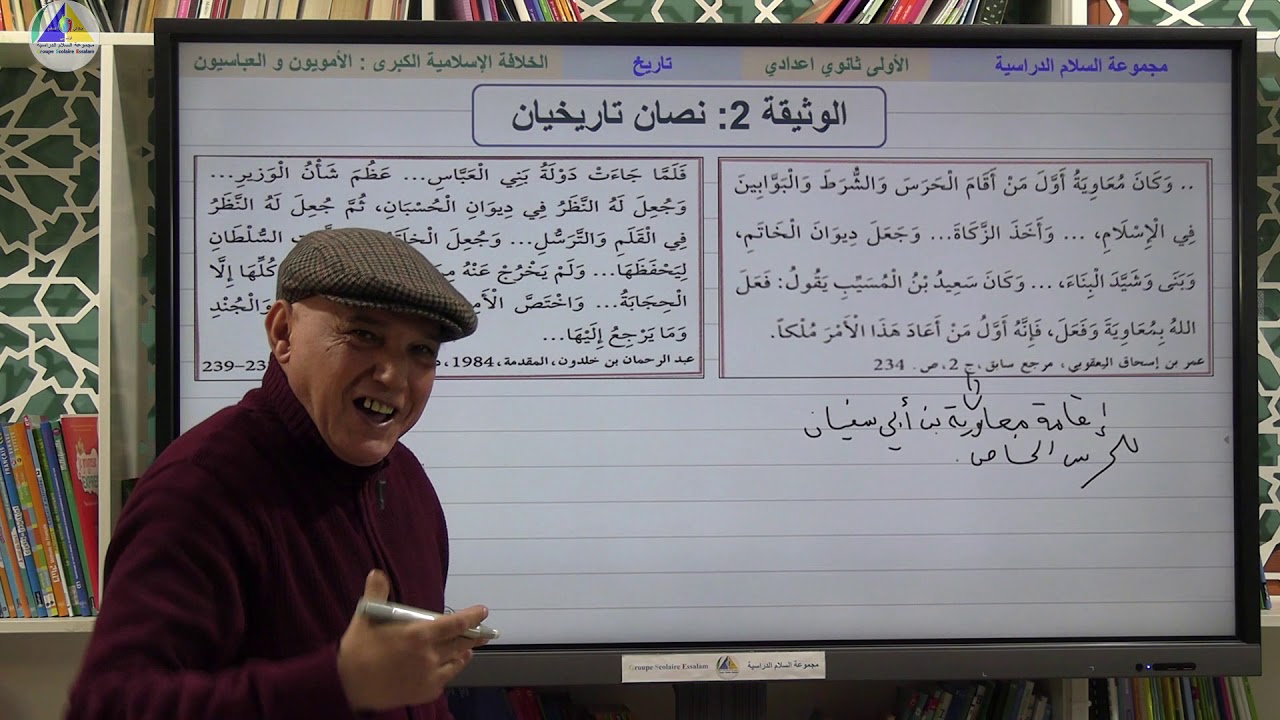 مجموعة السلام الدراسية
Groupe Scolaire Essalam
مجموعة السلام الدراسية
الأولى ثانوي اعدادي
تاريخ
الخلافة الإسلامية الكبرى : الأمويون و العباسيون
الوثيقة 2: نصان تاريخيان
.. وَكَانَ مُعَاوِيَةُ أَوَّلَ مَنْ أَقَامَ الْحَرَسَ وَالشُّرَطَ وَالْبَوَّابِينَ
فِي الْإِسْلَامِ، ... وَأَخَذَ الزَّكَاةَ... وَجَعَلَ دِيوَانَ الْخَاتَمِ،
وَبَنَى وَشَيَّدَ الْبِنَاءَ، ... وَكَانَ سَعِيدُ بْنُ الْمُسَيِّبِ يَقُولُ: فَعَلَ
اللهُ بِمُعَاوِيَةَ وَفَعَلَ، فَإِنَّهُ أَوَّلُ مَنْ أَعَادَ هَذَا الْأَمْرَ مُلْكاً.
عمر بن إسحاق اليعقوبي، مرجع سابق، ج 2، ص. 234
فَلَمَّا جَاءَتْ دَوْلَةُ بَنِي الْعَبَّاسِ... عَظُمَ شَأْنُ الْوَزِيرِ...
وَجُعِلَ لَهُ النَّظَرُ فِي دِيوَانِ الْحُسْبَانِ، ثُمَّ جُعِلَ لَهُ النَّظَرُ
فِي الْقَلَمِ وَالتَّرَسُّلِ... وَجُعِلَ السُّلْطَانِ
لِيَحْفَظَهَا... وَلَمْ يَخْرُجْ عَنْهُ كُلِّهَا إِلَّا
الْحِجَابَةُ... وَاخْتَصَّ وَالْجُنْدِ
وَمَا يَرْجِعُ إِلَيْهَا...
عبد الرحمان بن خلدون، المقدمة، 1984، 239
إقامة معاوية بن أبي سفيان
للحرس الخاص.
Groupe Scolaire Essalam
مجموعة السلام الدراسية